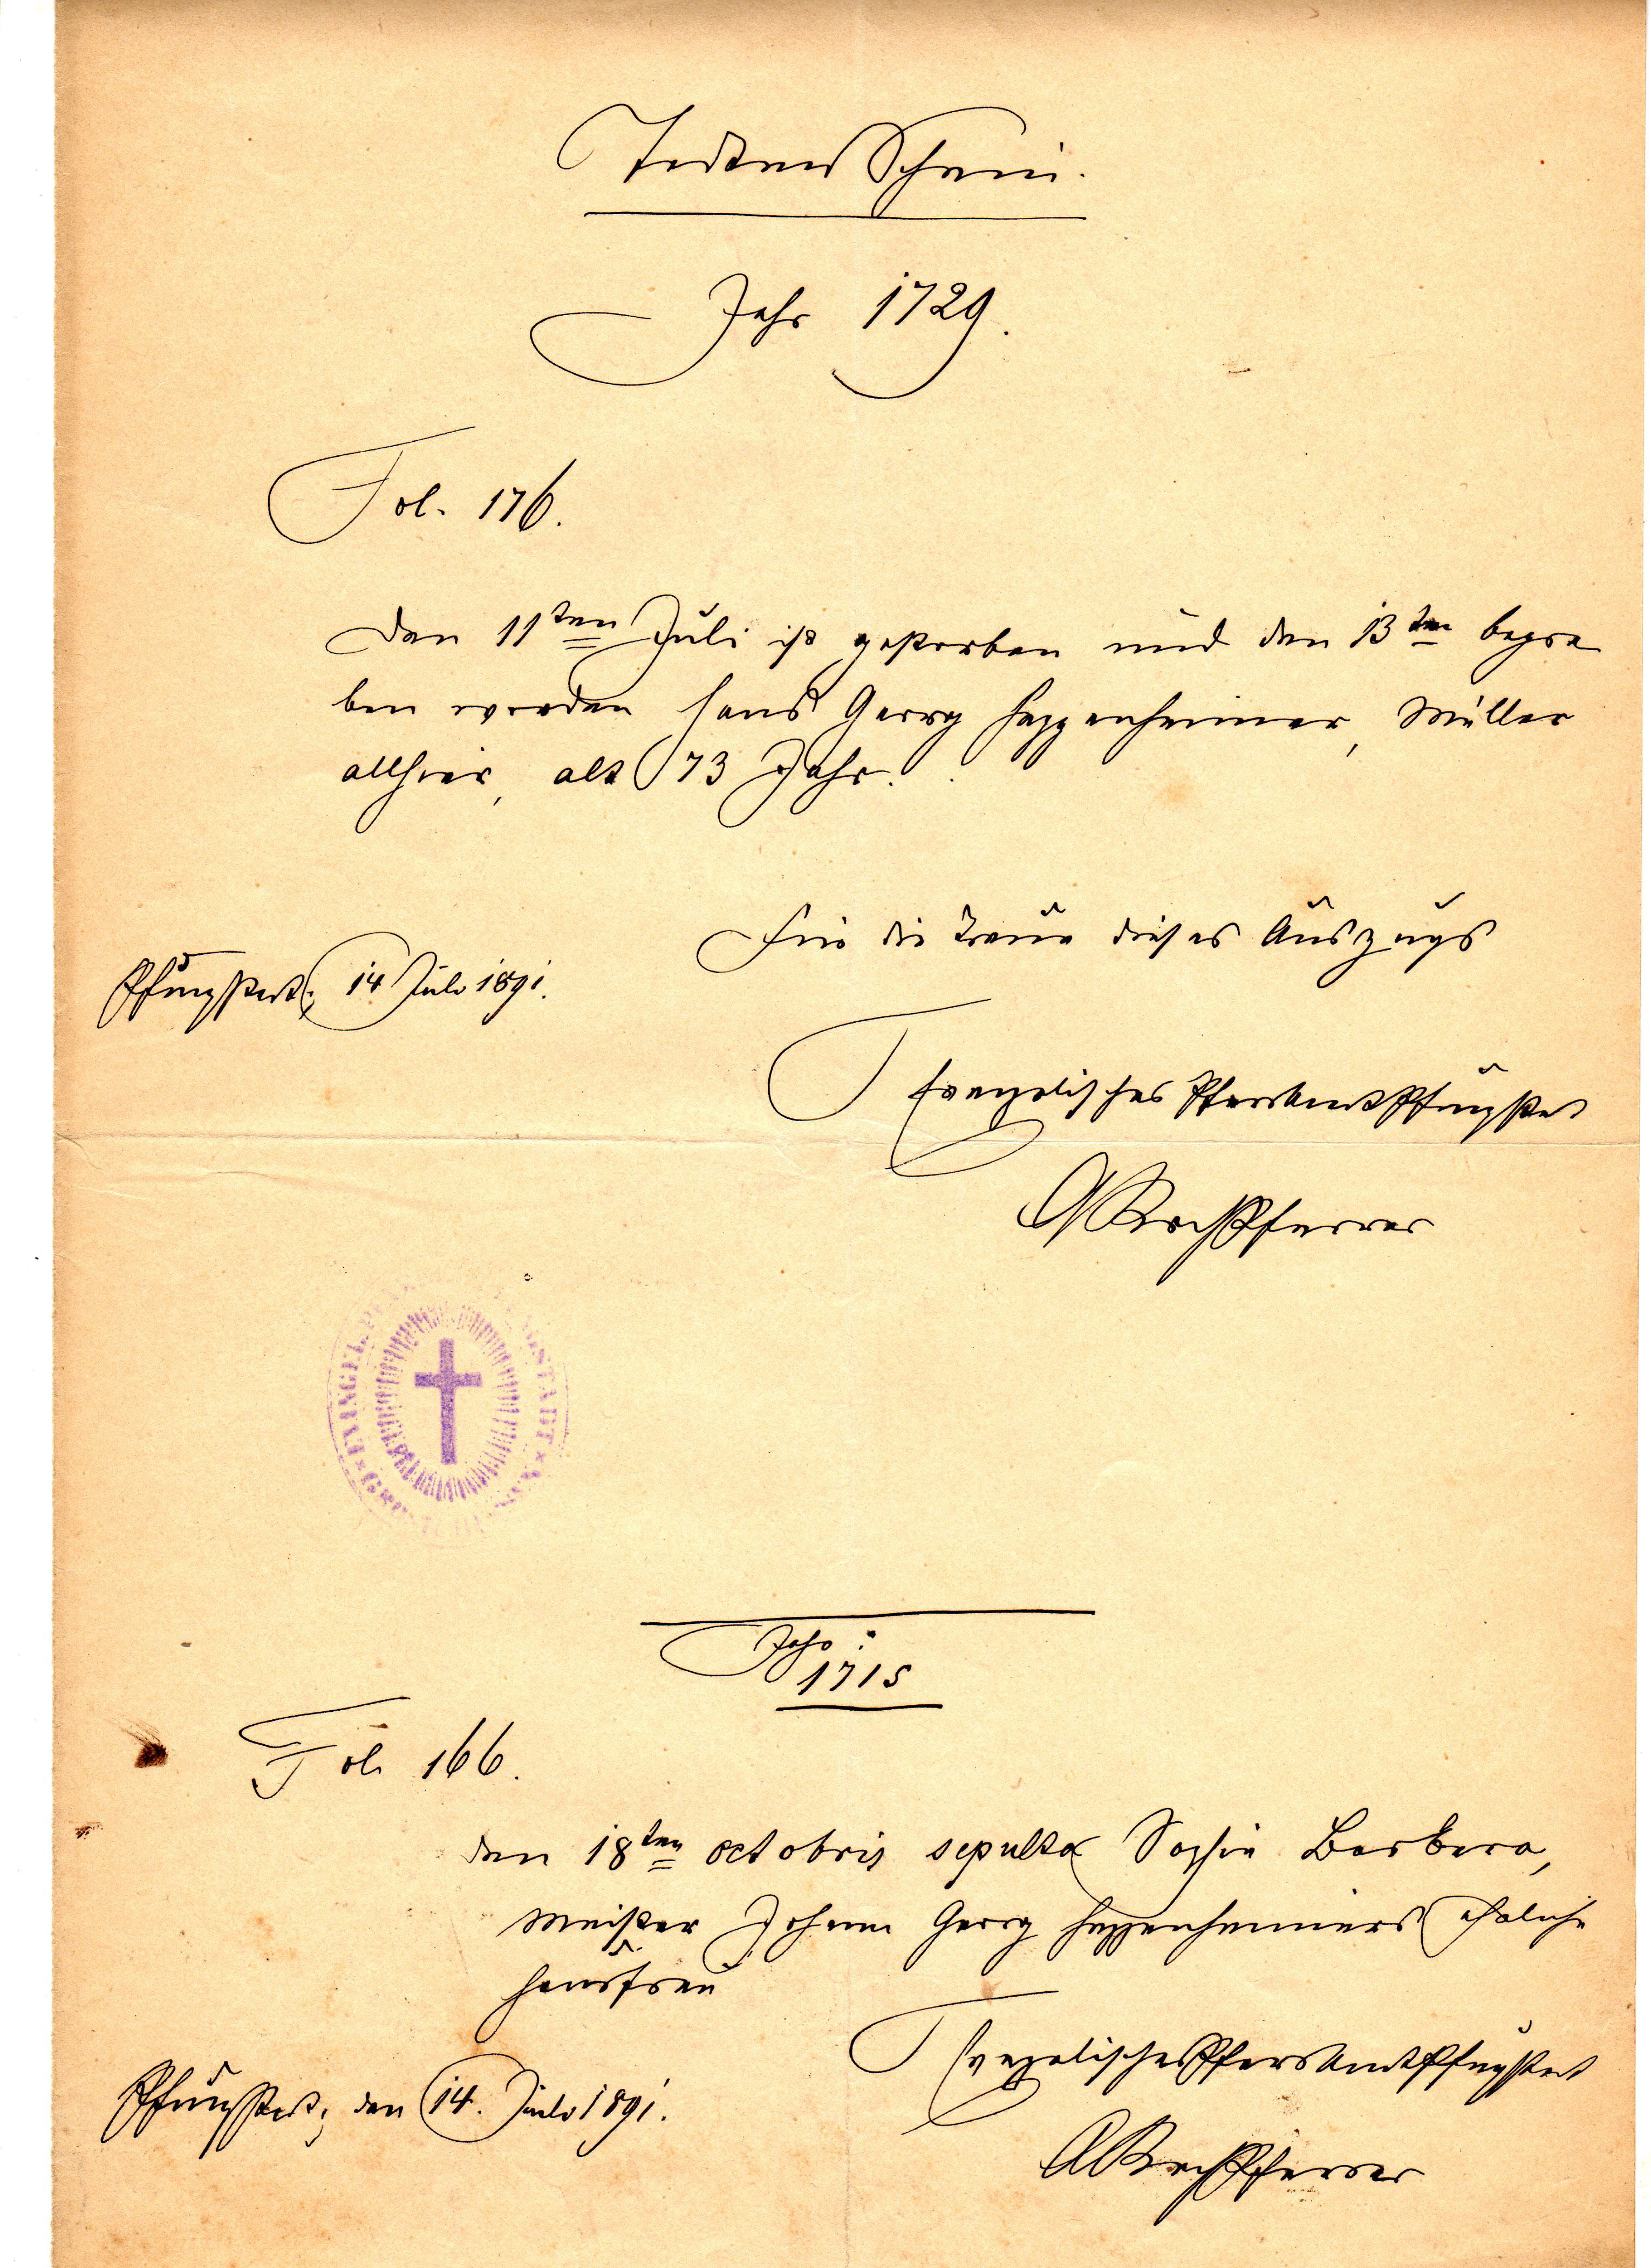 Todten Schein.
Jahr 1729.
Fol. 176.
Den 11ten Juli ist gestorben und den 13ten begra
ben worden Hans Georg Heppenheimer, Müller
allhier, alt 73 Jahr.
Für die Treue dieses Auszugs
Pfungstadt, 14 Juli 1891.
Evangelisches Pfarramt Pfungstadt
Koch Pfarrer
EVANGEL. NGSTADT
Jahr:
1715
Fol. 166.
den 18ten octobris sepulta Sophia Barbara,
Meister Johann Georg Heppenheimers eheliche
Hausfrau
Evangelisches Pfarramt Pfungstadt
Pfungstadt, den 14. Juli 1891.
Koch Pfarrer